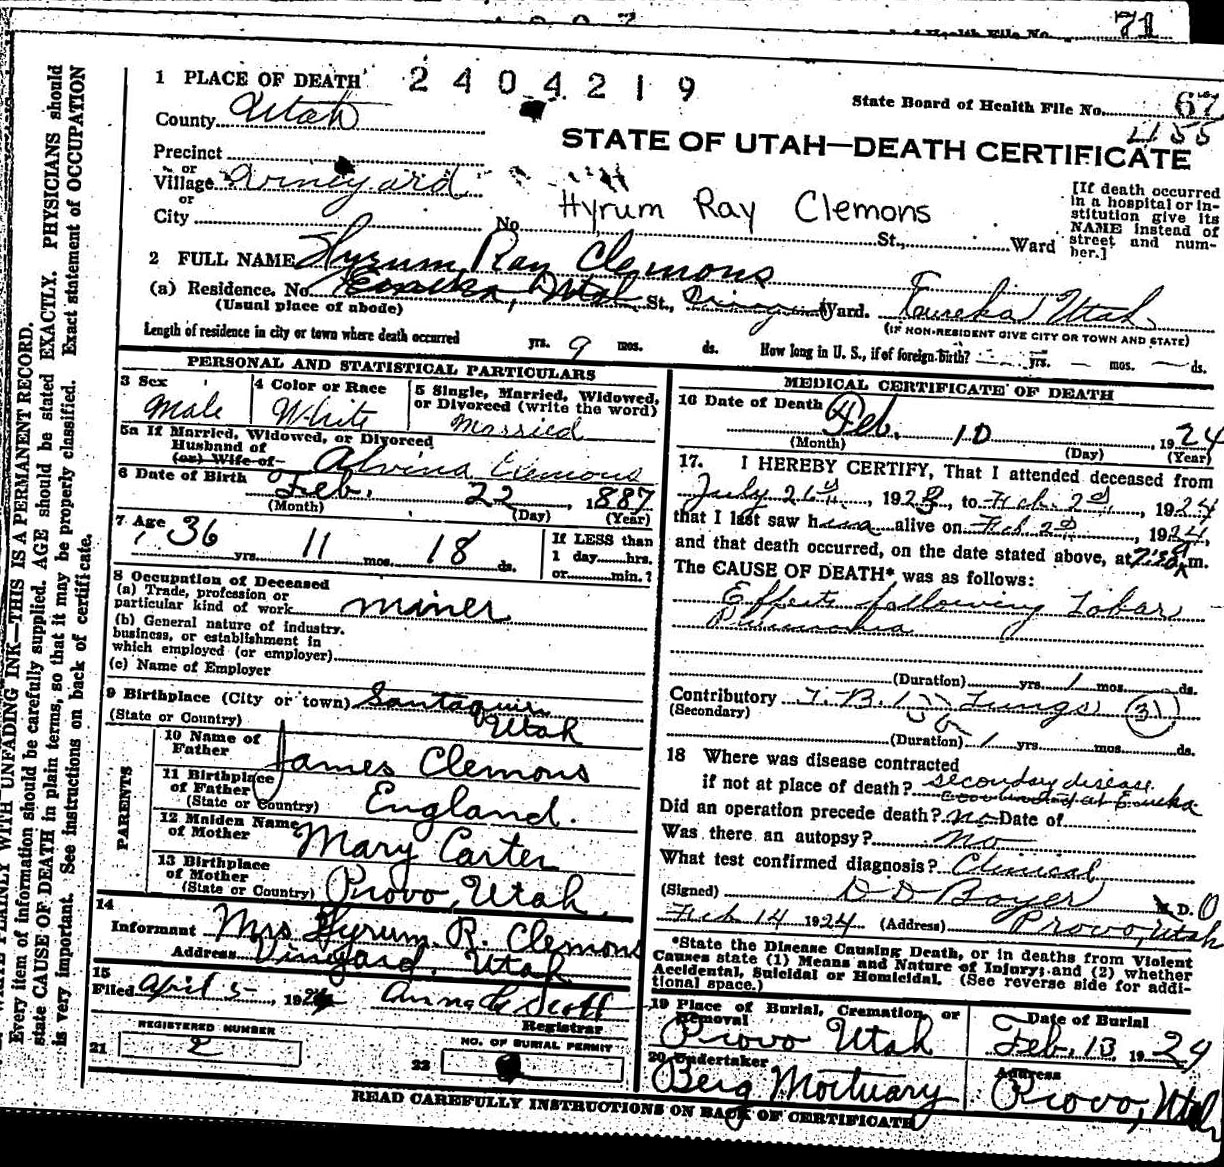 71
of Health File No.
1 PLACE OF DEATH 2404219
State Board of Health File No. 67
County Utah
4155
STATE OF UTAH—DEATH CERTIFICATE
Precinct
or
Village Vineyard
or
City
No. St., Ward
Hyrum Ray Clemons
[If death occurred
in a hospital or in-
stitution give its
NAME instead of
street and num-
ber.]
2 FULL NAME Hyrum Ray Clemons
(a) Residence. No. Eureka, Utah St., Ward. Eureka Utah
(Usual place of abode)
(IF NON-RESIDENT GIVE CITY OR TOWN AND STATE)
Length of residence in city or town where death occurred yrs. 9 mos. ds. How long in U. S., if of foreign birth? yrs. — mos. — ds.
PERSONAL AND STATISTICAL PARTICULARS
3 Sex
Male
4 Color or Race
White
5 Single, Married, Widowed,
or Divorced (write the word)
Married
5a If Married, Widowed, or Divorced
Husband of
(or) Wife of
Alvina Clemons
6 Date of Birth
Feb. 22 1887
(Month) (Day) (Year)
7 Age
36 yrs. 11 mos. 18 ds.
If LESS than
1 day hrs.
or min.?
8 Occupation of Deceased
(a) Trade, profession or
particular kind of work miner
(b) General nature of industry,
business, or establishment in
which employed (or employer)
(c) Name of Employer
9 Birthplace (City or town) Santaquin
(State or Country) Utah
PARENTS
10 Name of
Father James Clemons
11 Birthplace
of Father
(State or Country) England.
12 Maiden Name
of Mother Mary Carter
13 Birthplace
of Mother
(State or Country) Provo, Utah.
14
Informant Mrs Hyrum R. Clemons
Address Vinyard, Utah
15
Filed April 5, 1924 Anna C Scott
Registrar
REGISTERED NUMBER
21 2
NO. OF BURIAL PERMIT
22
MEDICAL CERTIFICATE OF DEATH
16 Date of Death
Feb. 10, 1924
(Month) (Day) (Year)
17. I HEREBY CERTIFY, That I attended deceased from
July 26, 1923, to Feb. 2d, 1924
that I last saw him alive on Feb 2d, 1924,
and that death occurred, on the date stated above, at m.
The CAUSE OF DEATH* was as follows:
Effects following Lobar
Pneumonia
(Duration) yrs. 1 mos. ds.
Contributory T. B. Lungs 31
(Secondary)
(Duration) 1 yrs. mos. ds.
18 Where was disease contracted
if not at place of death? seconday disease
Eureka
Did an operation precede death? No Date of
Was there an autopsy? No
What test confirmed diagnosis? Clinical
(Signed) D D Boyer D.O
Feb 14 1924 (Address) Provo, Utah
*State the Disease Causing Death, or in deaths from Violent
Causes state (1) Means and Nature of Injury; and (2) whether
Accidental, Suicidal or Homicidal. (See reverse side for addi-
tional space.)
19 Place of Burial, Cremation, or
Removal
Provo Utah
Date of Burial
Feb. 13 1924
20 Undertaker
Berg Mortuary
Address
Provo, Utah
READ CAREFULLY INSTRUCTIONS ON BACK OF CERTIFICATE
WRITE PLAINLY WITH UNFADING INK—THIS IS A PERMANENT RECORD.
Every item of information should be carefully supplied. AGE should be stated EXACTLY. PHYSICIANS should
state CAUSE OF DEATH in plain terms, so that it may be properly classified. Exact statement of OCCUPATION
is very important. See instructions on back of certificate.